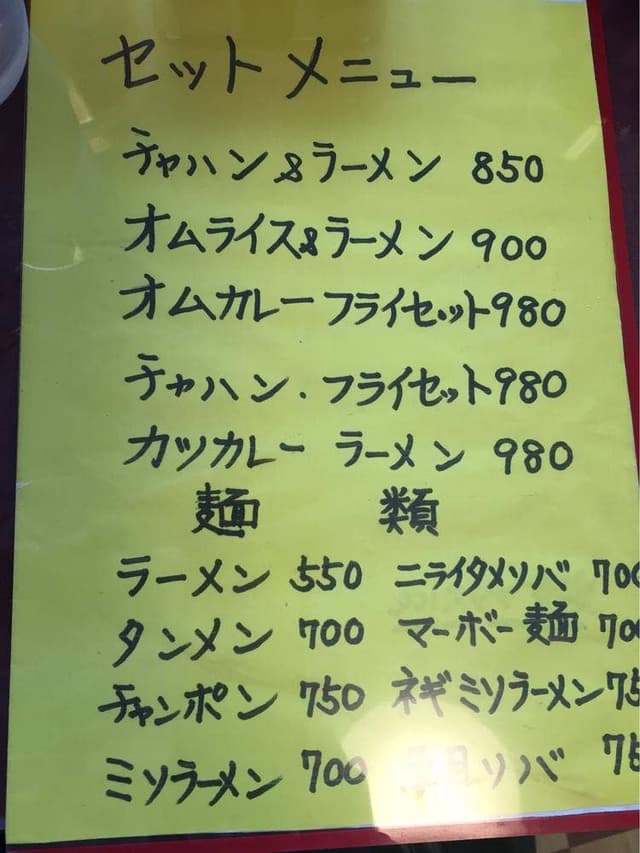 セットメニュー
チャハン&ラーメン 850
オムライス&ラーメン 900
オムカレーフライセット 980
チャハン・フライセット 980
カツカレー ラーメン 980
麺 類
ラーメン 550 ニライタメソバ 700
タンメン 700 マーボー麺 700
チャンポン 750 ネギミソラーメン 75
ミソラーメン 700 見ソバ 75